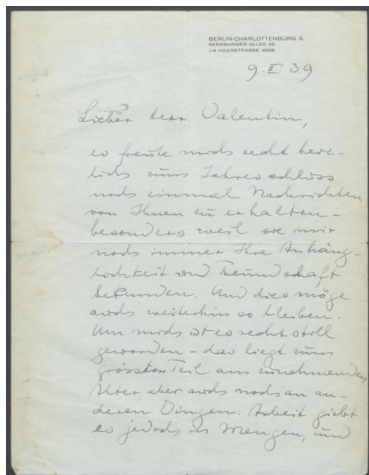 BERLIN-CHARLOTTENBURG 9.
SENSBURGER ALLEE 26
J 9 HEERSTRASSE
9.II 39
Lieber Herr Valentin,
es freute mich recht herz-
lich zum Jahresschluss
noch einmal Nachrichten
von Ihnen zu erhalten -
besonders weil sie mir
noch immer Ihre Anhäng-
lichkeit und Freundschaft
bekunden. Und dies möge
auch weiterhin so bleiben.
Um mich ist es recht still
geworden - das liegt zum
grössten Teil am zunehmenden
Alter aber auch noch an an-
deren Dingen. Arbeit giebt
es jedoch in Mengen, und